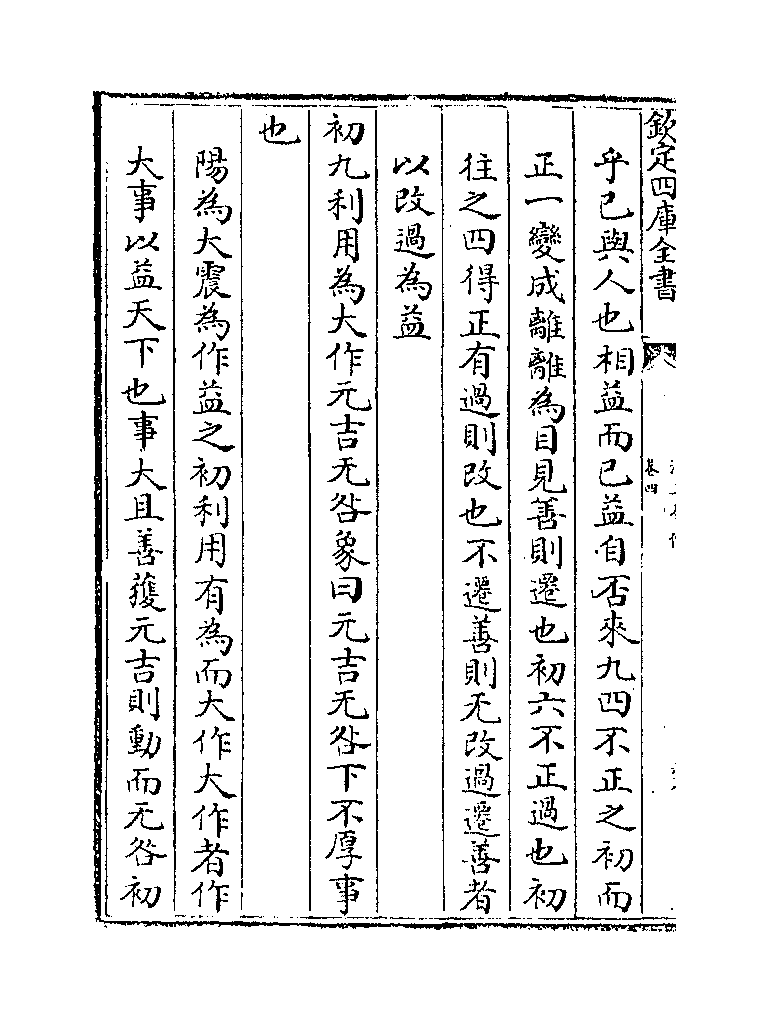 欽定四庫全書
卷四
乎已與人也相益而已益自否來九四不正之初而
正一變成離離為目見善則遷也初六不正過也初
往之四得正有過則改也不遷善則无改過遷善者
以改過為益
初九利用為大作元吉无咎象曰元吉无咎下不厚事
也
陽為大震為作益之初利用有為而大作大作者作
大事以益天下也事大且善獲元吉則動而无咎初